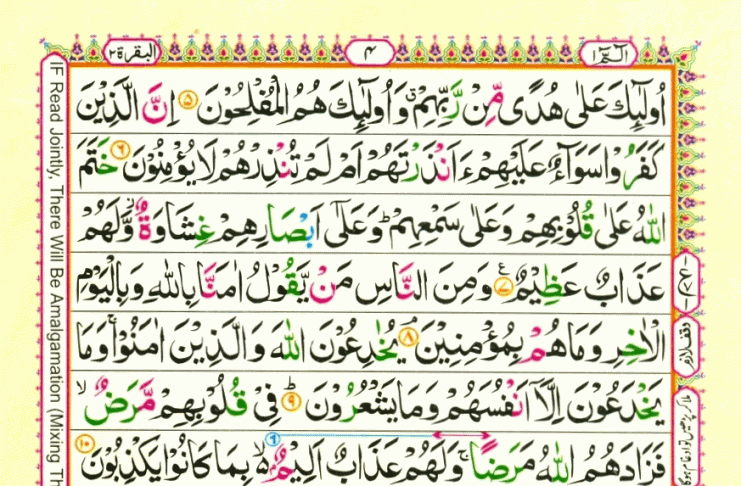 الٓمّٓ ١
٤
البقرة ٢
اُولٰٓئِكَ عَلٰى هُدًى مِّنْ رَّبِّهِمْ ۙ وَاُولٰٓئِكَ هُمُ الْمُفْلِحُوْنَ ۝۵ اِنَّ الَّذِيْنَ
كَفَرُوْا سَوَآءٌ عَلَيْهِمْ ءَاَنْذَرْتَهُمْ اَمْ لَمْ تُنْذِرْهُمْ لَا يُؤْمِنُوْنَ ۝۶ خَتَمَ
اللّٰهُ عَلٰى قُلُوْبِهِمْ وَعَلٰى سَمْعِهِمْ ؕ وَعَلٰٓى اَبْصَارِهِمْ غِشَاوَةٌ ۫ وَّلَهُمْ
عَذَابٌ عَظِيْمٌ ۝۷ ع وَمِنَ النَّاسِ مَنْ يَّقُوْلُ اٰمَنَّا بِاللّٰهِ وَبِالْيَوْمِ
الْاٰخِرِ وَمَا هُمْ بِمُؤْمِنِيْنَ ۝۸ يُخٰدِعُوْنَ اللّٰهَ وَالَّذِيْنَ اٰمَنُوْا ۚ وَمَا
يَخْدَعُوْنَ اِلَّآ اَنْفُسَهُمْ وَمَا يَشْعُرُوْنَ ۝۹ ؕ فِيْ قُلُوْبِهِمْ مَّرَضٌ ۙ
فَزَادَهُمُ اللّٰهُ مَرَضًا ۚ وَلَهُمْ عَذَابٌ اَلِيْمٌ ۢ ۙ بِمَا كَانُوْا يَكْذِبُوْنَ ۝۱۰
وقف لازم
IF Read Jointly, There Will Be Amalgamation (Mixing Th